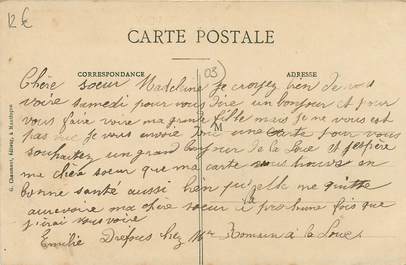 12€
CARTE POSTALE
CORRESPONDANCE
03
ADRESSE
M
G. Chaumont, Éditeur, à
Chère soeur Madeleine je croyez bien de vous
voire samedi pour vous dire un bonjour et pour
vous faire voire ma grande fille mais je ne vous est
pas vue je vous envoie une carte pour vous
souhaitez un grand bonjour de la Loue et j'espère
ma chère soeur que ma carte vous trouve en
bonne santé aussi bien qu'elle me quitte
aurevoire ma chère soeur a prochune fois que
j'irai vous voire
Emilie chez Mr Romain à la Loue